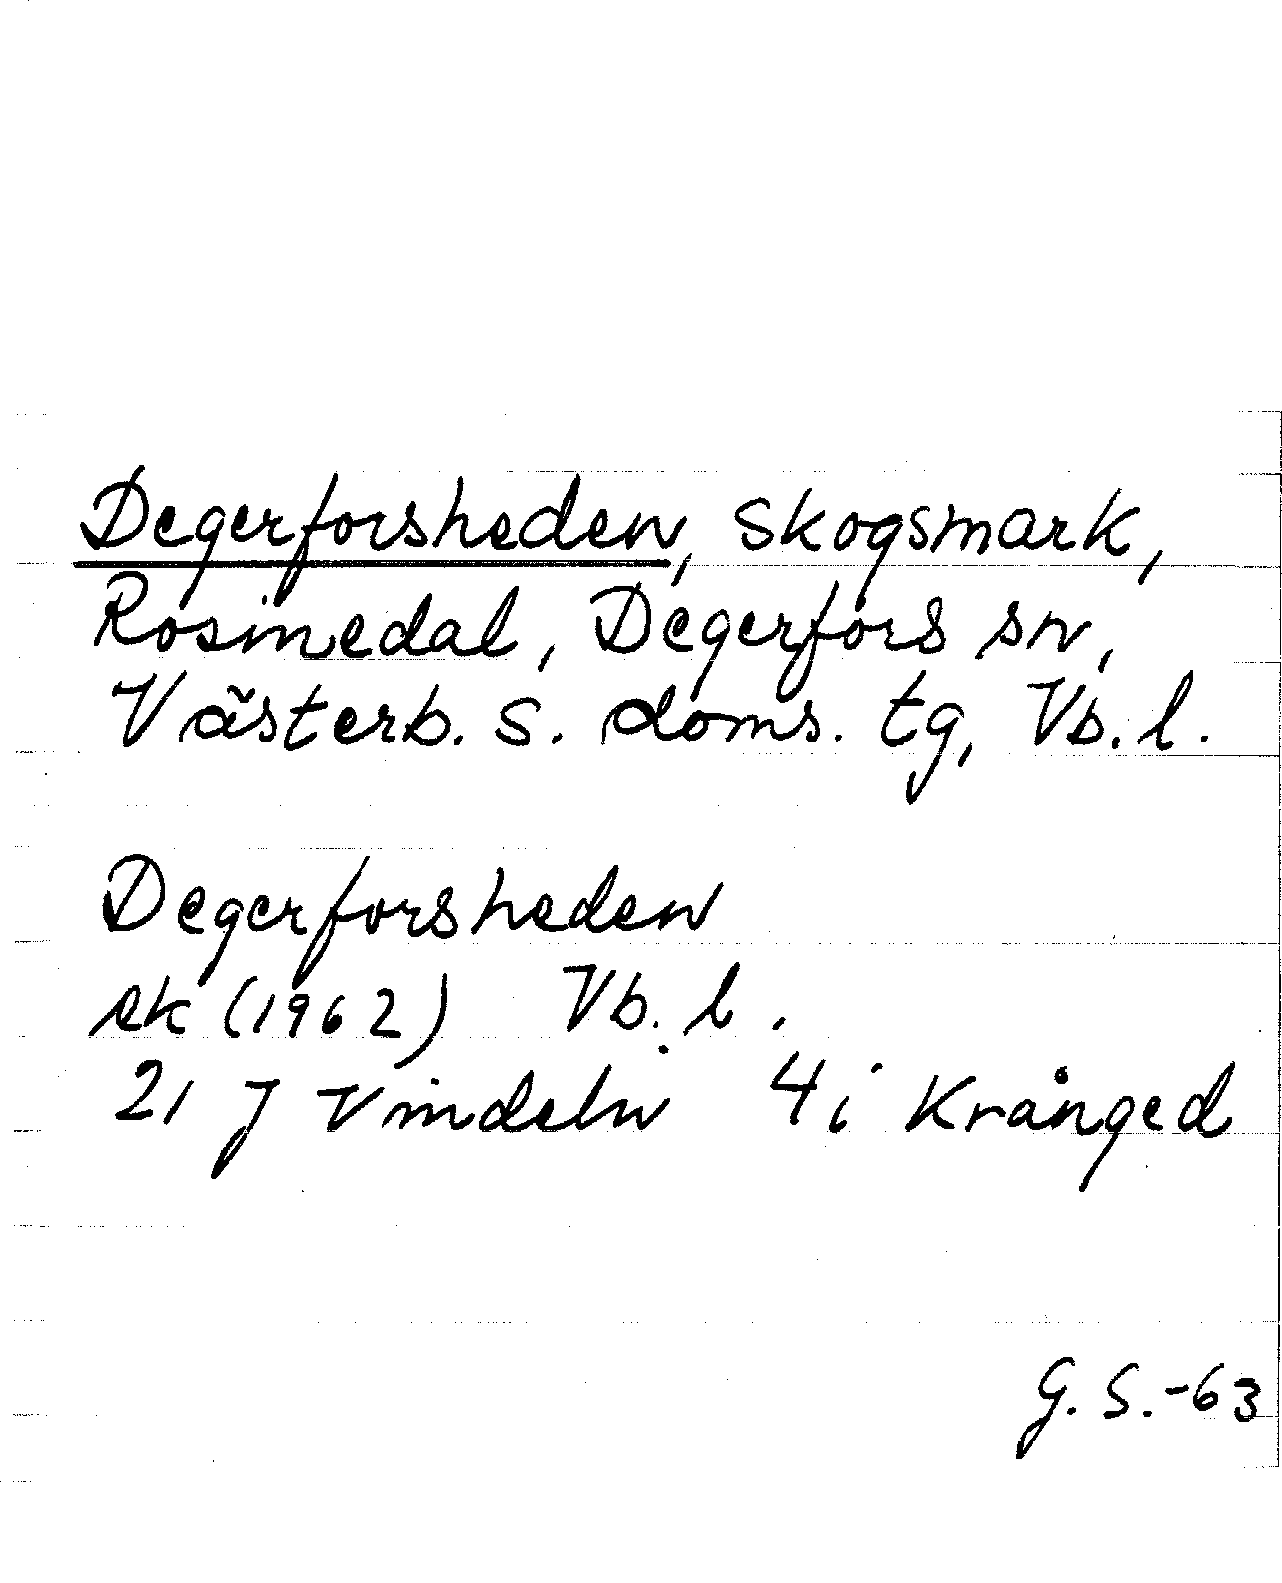 Degerforsheden, skogsmark,
Rosinedal, Degerfors sn,
Västerb. s. doms. tg, Vb. l.
Degerforsheden
ek (1962) Vb. l.
21 J Vindeln 4 i Krånged
G. S. -63